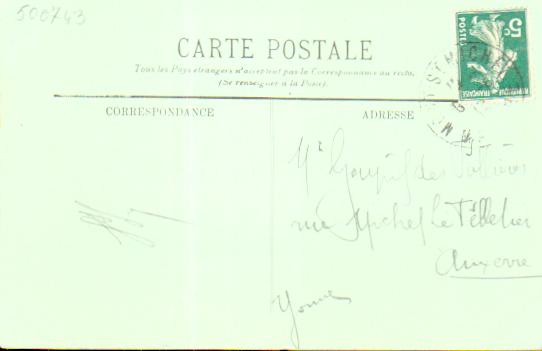 500743
CARTE POSTALE
Tous les Pays étrangers n'acceptent pas la Correspondance au recto.
(Se renseigner à la Poste).
CORRESPONDANCE
ADRESSE
5c
POSTES
RÉPUBLIQUE FRANÇAISE
Mr Goupil des
rue Michel Le Pelletier
Auxerre
Yonne